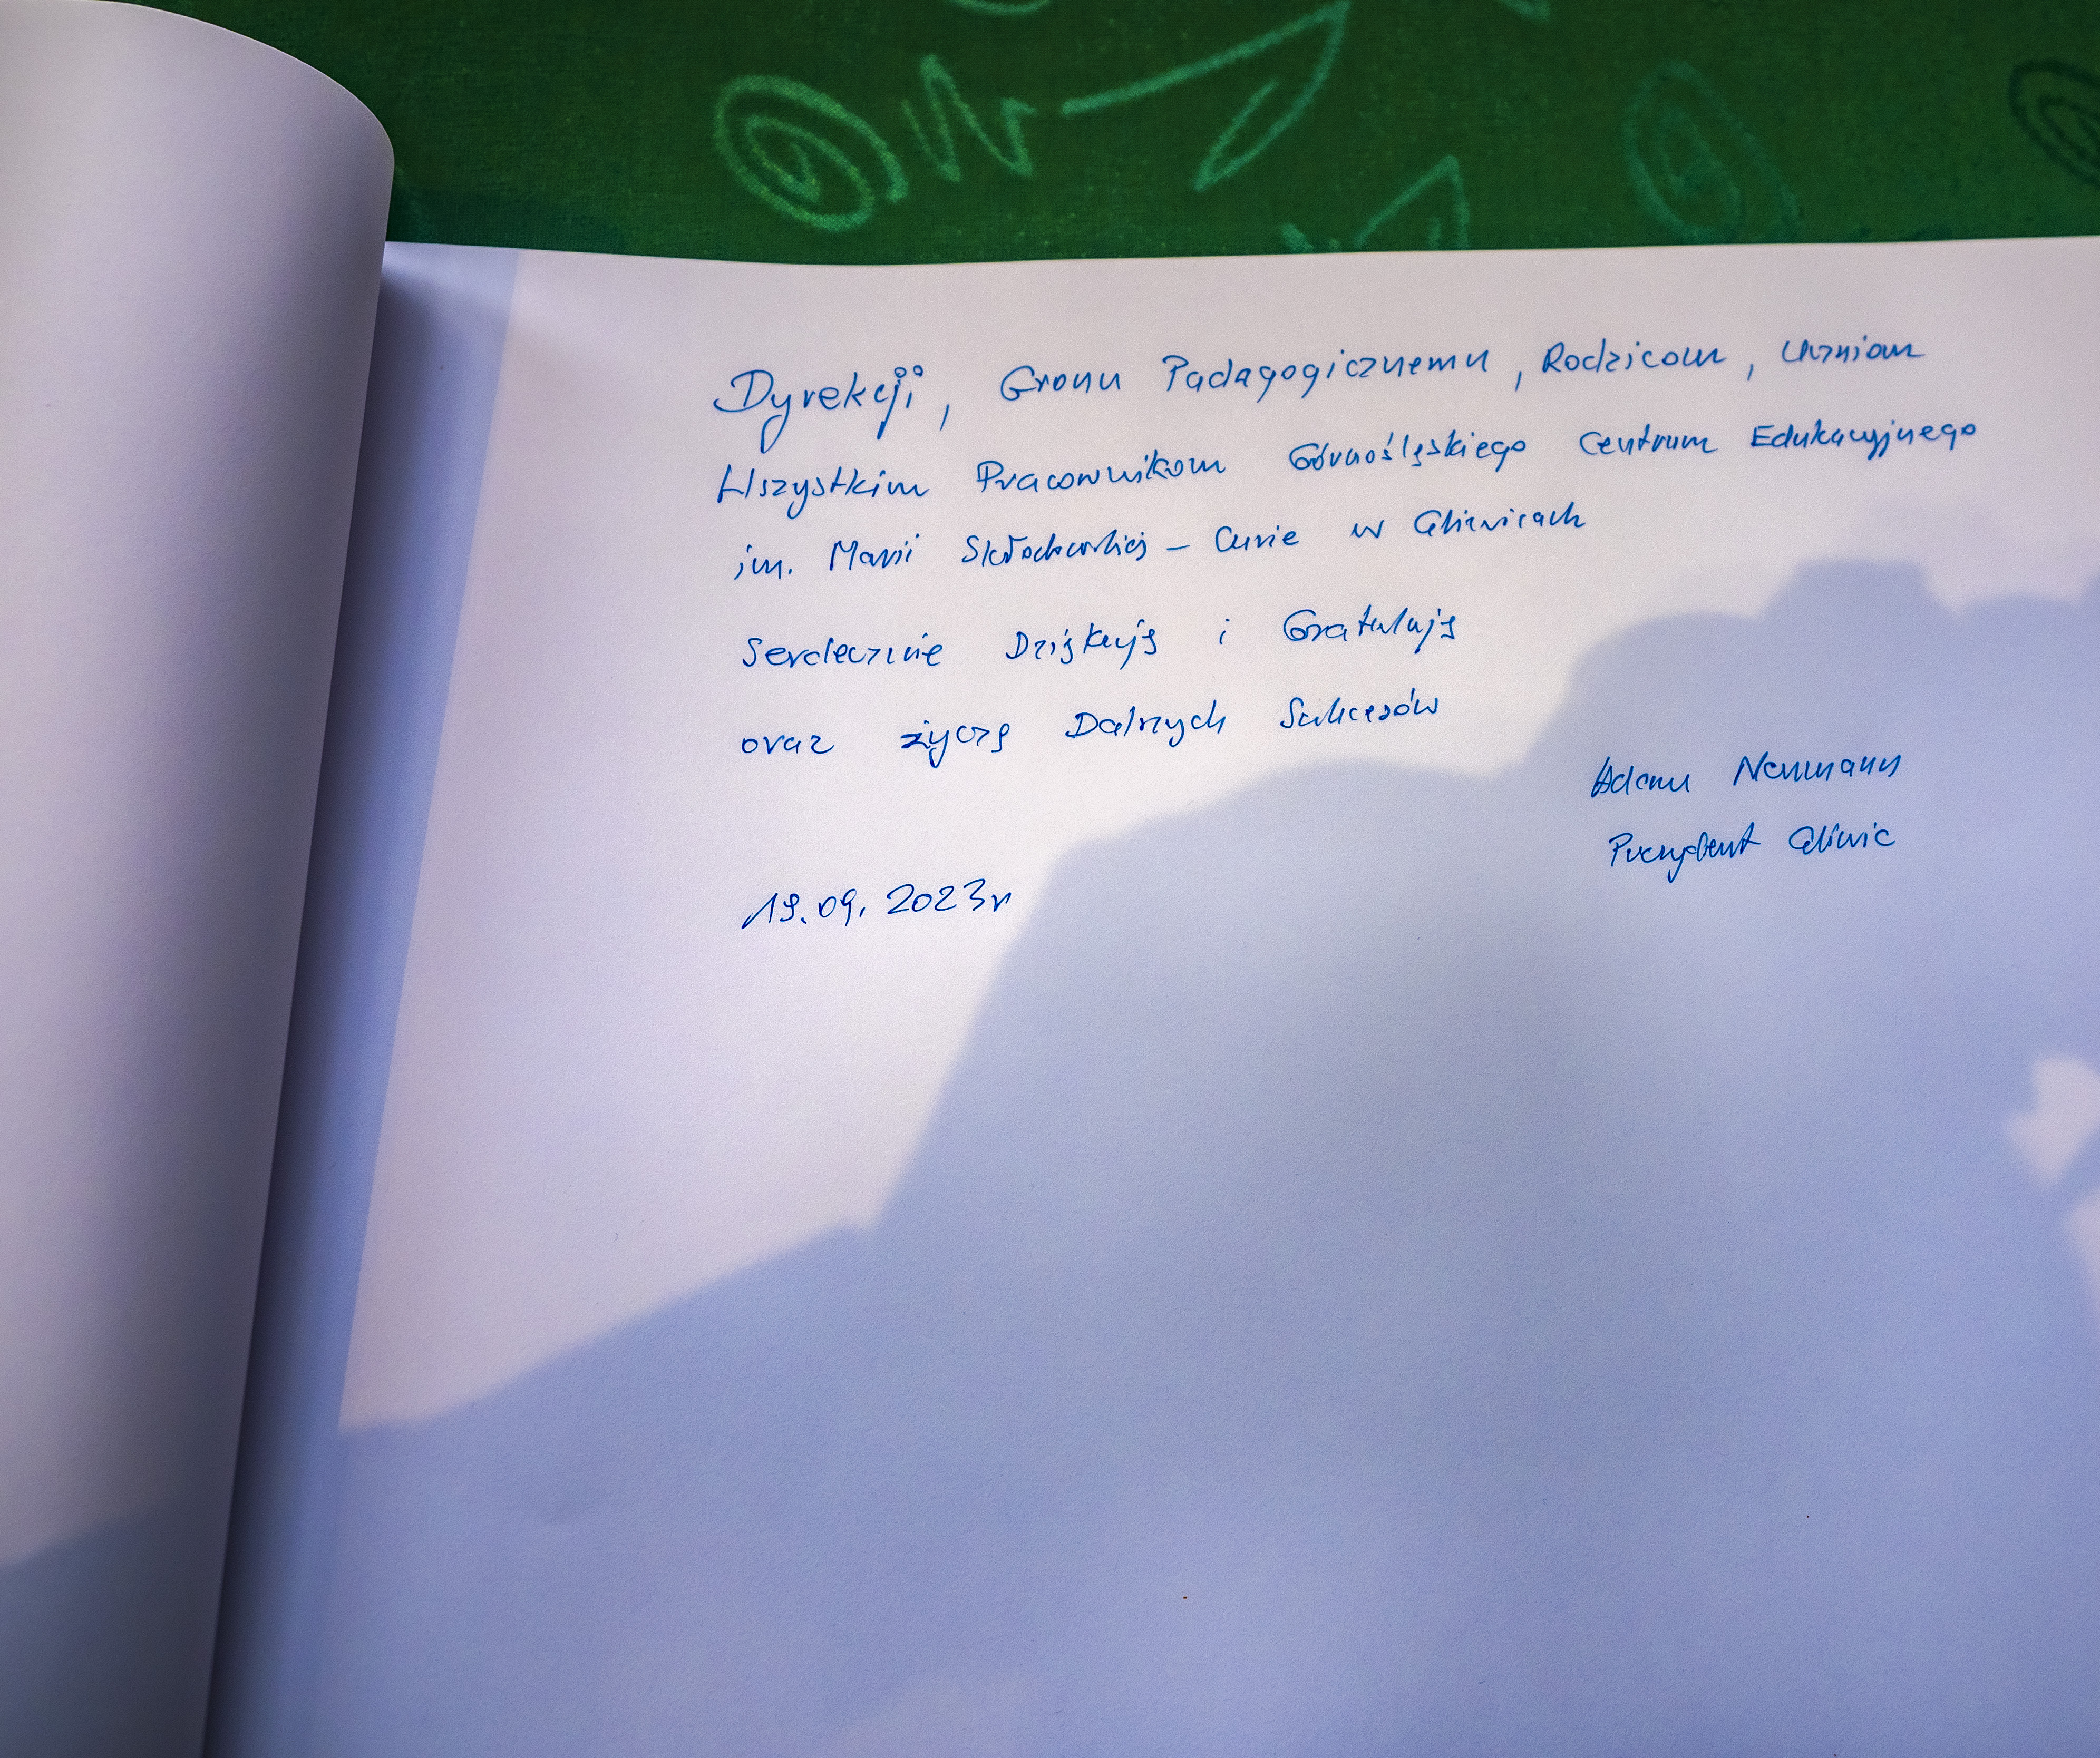 Dyrekcji, Gronu Padagogicznemu, Rodzicom, Uczniom
Wszystkim Pracownikom Górnośląskiego Centrum Edukacyjnego
im. Marii Skłodowskiej - Curie w Gliwicach
Serdecznie Dziękuję i Gratuluję
oraz życzę Dalszych Sukcesów
Adam Neumann
Prezydent Gliwic
19.09.2023r